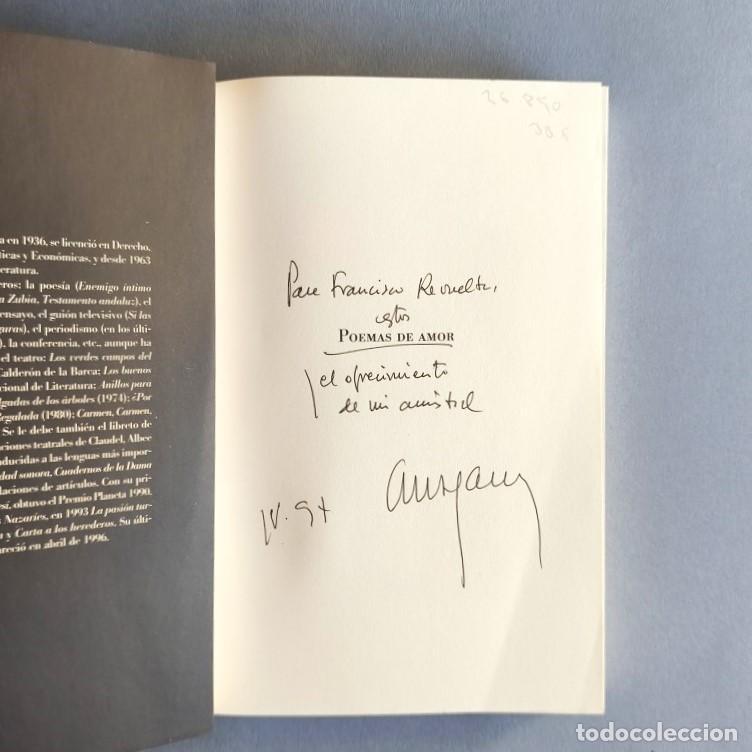 a en 1936, se licenció en Derecho,
ticas y Económicas, y desde 1963
eratura.
eros: la poesía (Enemigo íntimo
a Zubia, Testamento andaluz), el
ensayo, el guión televisivo (Si las
guras), el periodismo (en los últi-
), la conferencia, etc., aunque ha
el teatro: Los verdes campos del
Calderón de la Barca; Los buenos
cional de Literatura; Anillos para
lgadas de los árboles (1974); ¿Por
Regalada (1980); Carmen, Carmen,
Se le debe también el libreto de
ciones teatrales de Claudel, Albee
aducidas a las lenguas más impor-
dad sonora, Cuadernos de la Dama
laciones de artículos. Con su pri-
esí, obtuvo el Premio Planeta 1990.
Nazaríes, en 1993 La pasión tur-
a y Carta a los herederos. Su últi-
areció en abril de 1996.
26 890
Para Francisco Revuelta,
estos
POEMAS DE AMOR
y el ofrecimiento
de mi amistad
IV. 97
todocoleccion